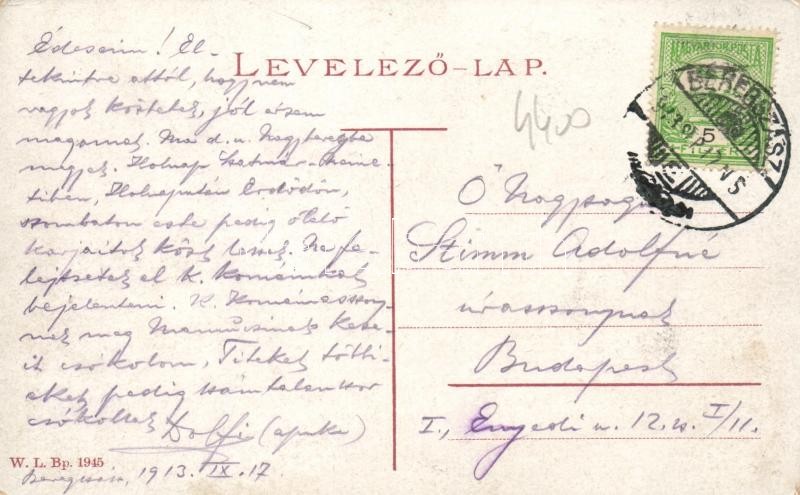 LEVELEZŐ-LAP.
Édeseim! El-
tekintve attól, hogy nem
vagyok köztetek, jól érzem
magamat. Ma d. u. Nagyberegbe
megyek. Holnap Szatmár-Németiben,
tiben, Holnapután Erdődön,
szombaton este pedig ölelő
karjaitok közt leszek. Ne fe-
lejtsetek el K. Komáinkat
bejelenteni. K. Komámasszony-
nak meg Mamuczinak keze-
it csókolom, Titeket
pedig számtalanszor
csókollak Dolfi (apuka)
1913. IX. 17
W. L. Bp. 1945
4400
MAGYAR KIR. POSTA
5
FILLÉR
BEREGSZÁSZ
Ő Nagysága
Stimm Adolfné
úrasszonynak
Budapest
I., Enyedi u. 12. sz. I/11.